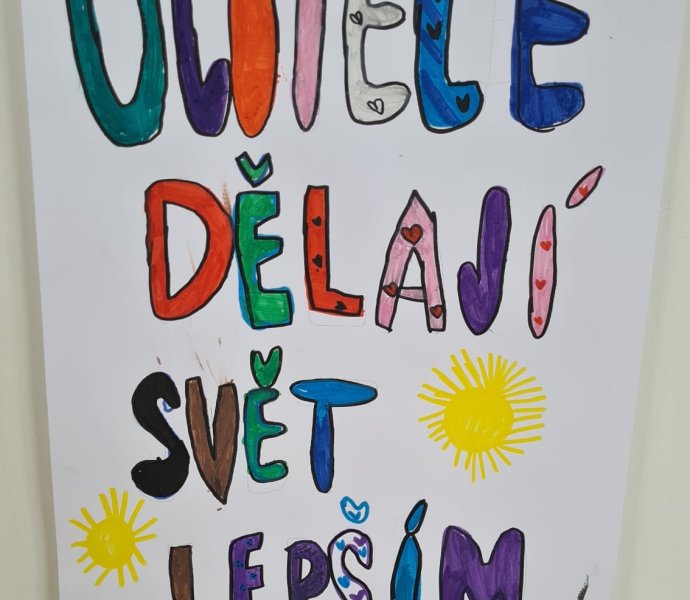 UČITELÉ
DĚLAJÍ
SVĚT
LEPŠÍM